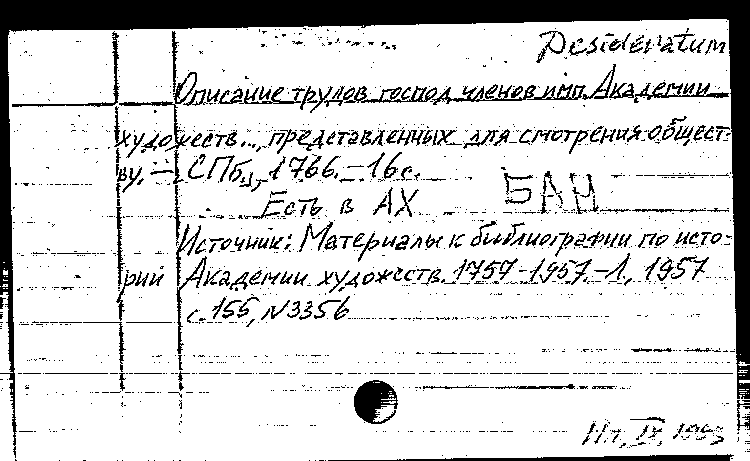 Desideratum
Описание трудов господ членов имп. Академии
художеств..., представленных для смотрения общест-
ву. — СПб., 1766. — 16 с.
Есть в АХ БАН
Источник: Материалы к библиографии по исто-
рии Академии художеств. 1757-1957. - Л., 1957
с. 155, N 3356
IX, 1983